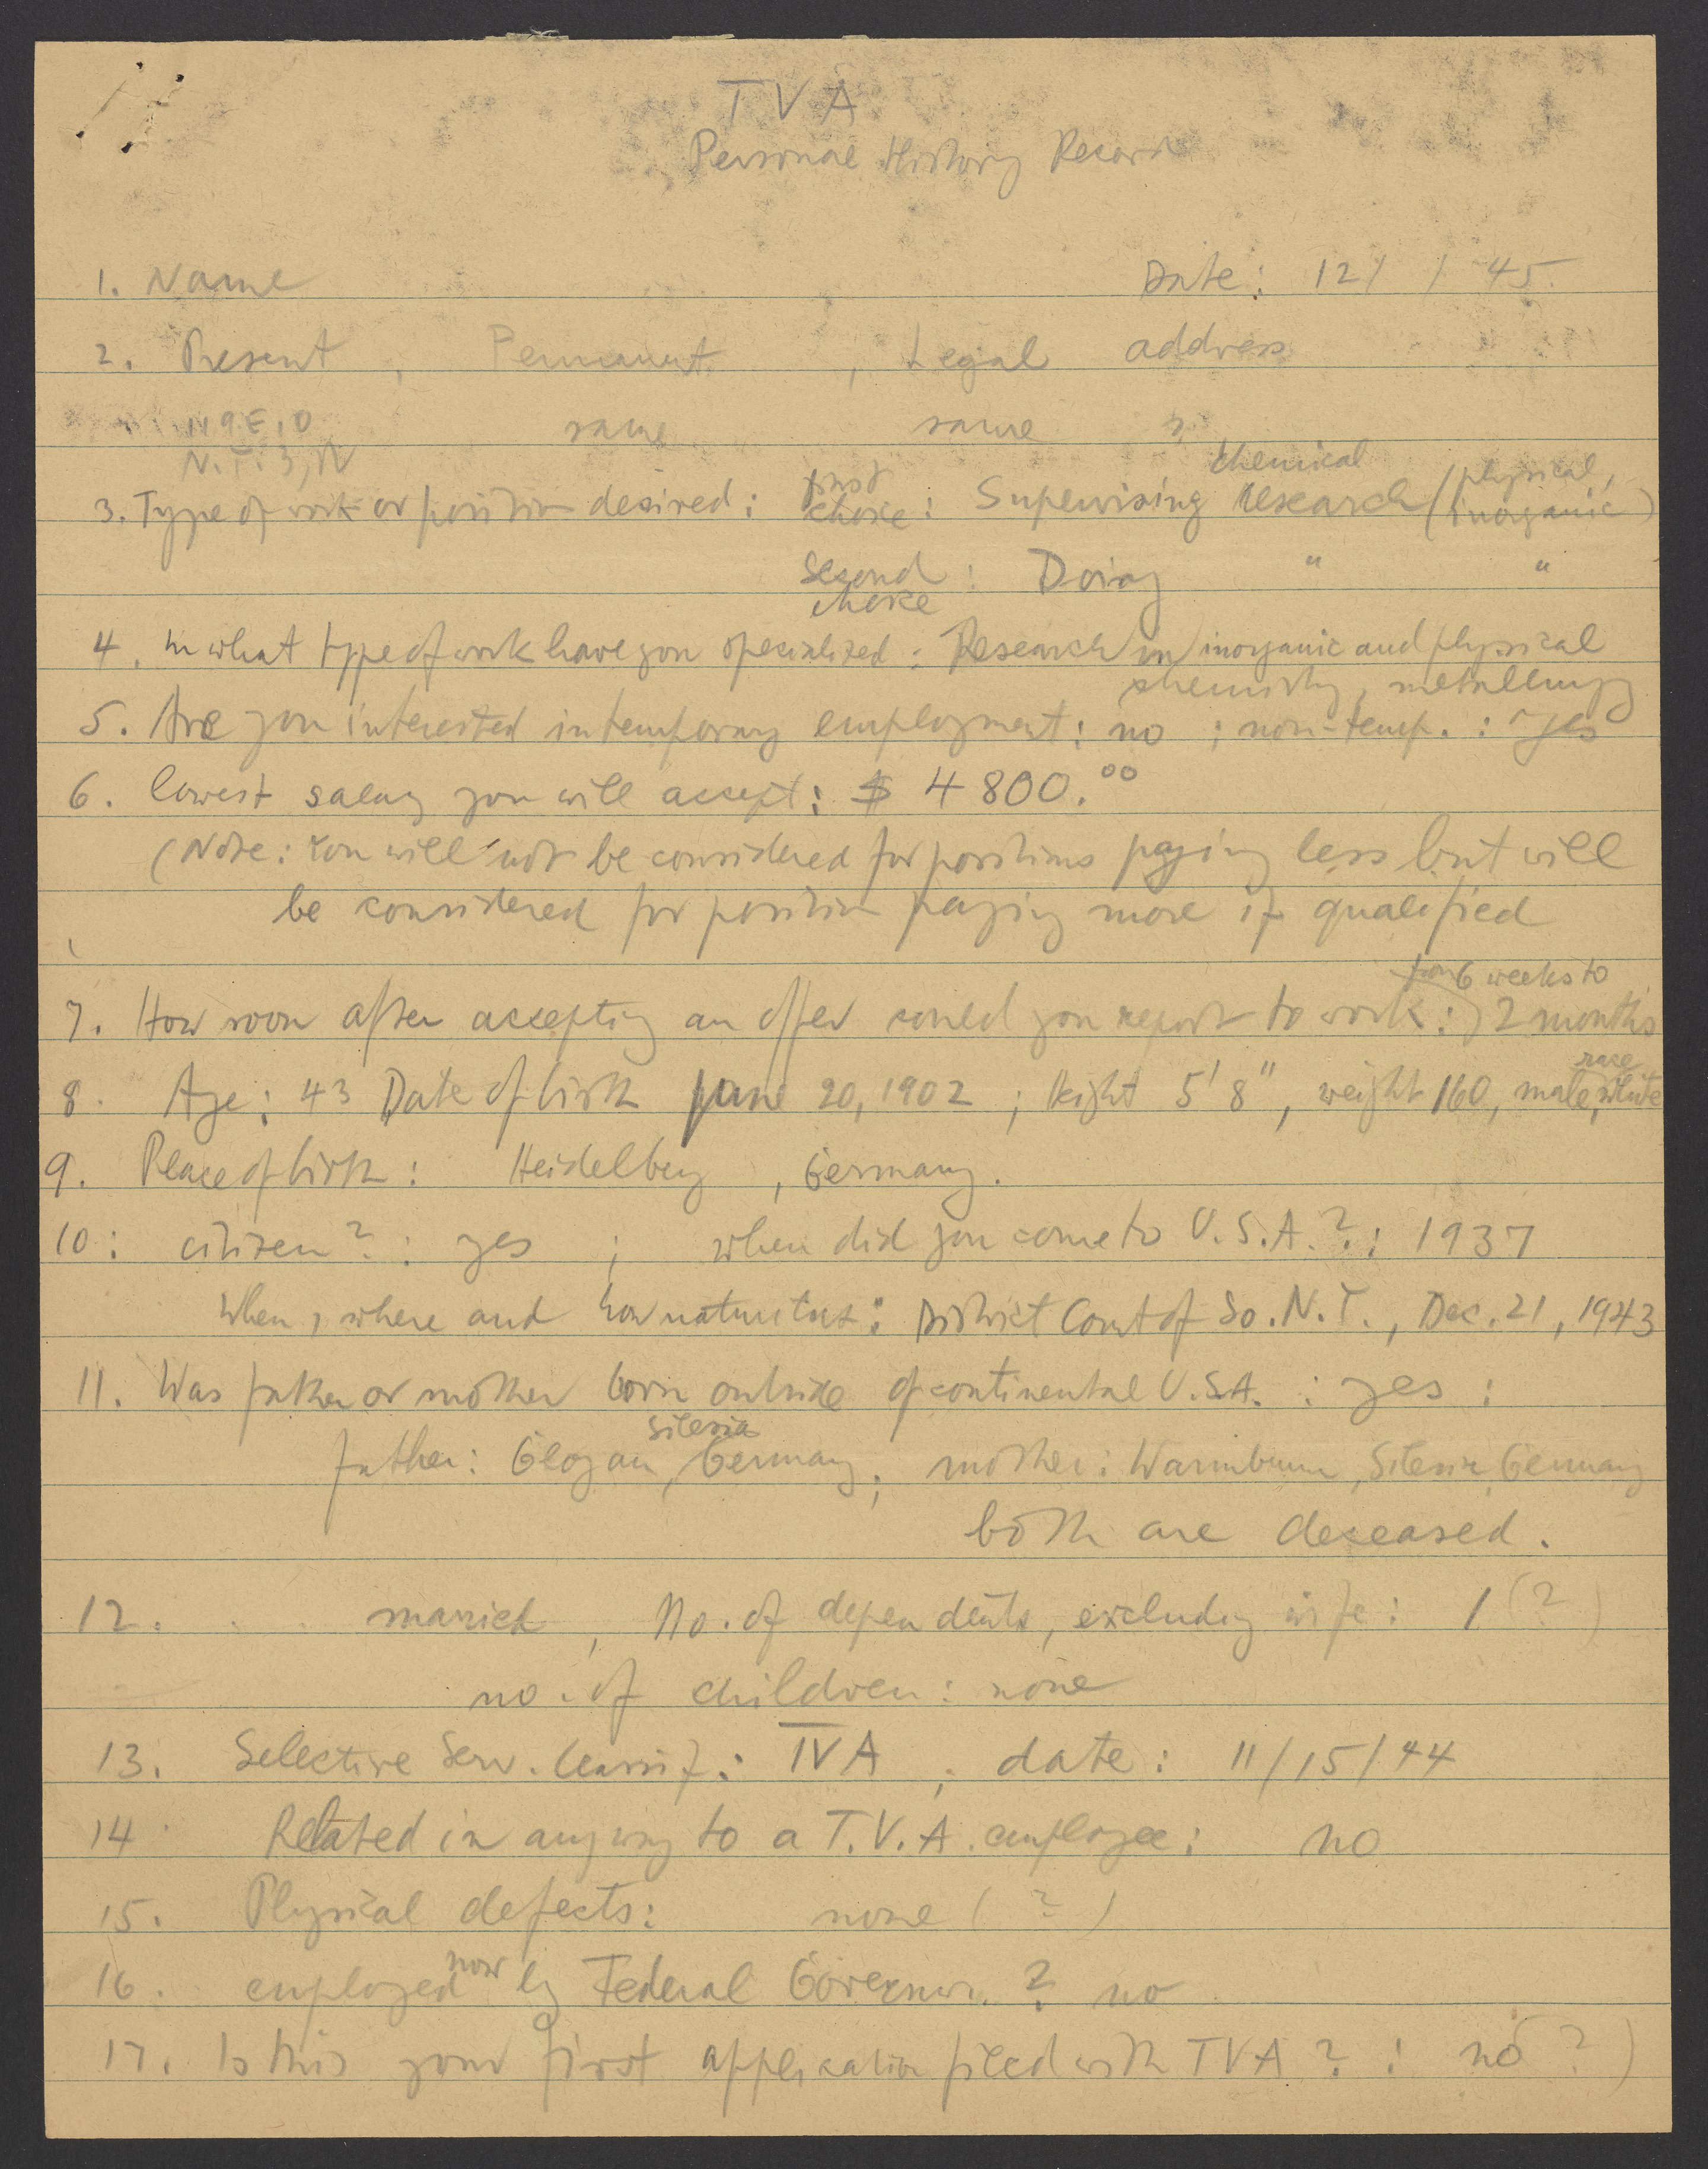 TVA
Personal History Record
1. Name Date: 12/ / 45.
2. Present , Permanent , Legal address
119 E, D same same
N.Y. 3, N
3. Type of work or position desired: first choice: Supervising chemical research (physical, inorganic)
second choice : Doing " "
4. In what type of work have you specialized: Research in inorganic and physical
chemistry, metallurgy
5. Are you interested in temporary employment: no ; non-temp. : yes
6. lowest salary you will accept: $ 4800.00
(Note: You will not be considered for positions paying less but will
be considered for position paying more if qualified
7. How soon after accepting an offer could you report to work: 6 weeks to 2 months
8. Age: 43 Date of birth June 20, 1902 ; Height 5' 8", weight 160, male, race white
9. Place of birth: Heidelberg , Germany.
10: citizen? : yes ; when did you come to U.S.A.? : 1937
When, where and how : District Court of So. N.Y., Dec. 21, 1943
11. Was father or mother born outside of continental U.S.A. : yes :
father: Glogau, Silesia Germany; mother: Warmbrunn, Silesia, Germany
both are deceased.
12. married, No. of dependents, excluding wife: 1 (?)
no. of children: none
13. Selective Serv. Classif.: IV A , date: 11/15/44
14 Related in any way to a T.V.A. employee: no
15. Physical defects: none (?)
16. employed now by Federal Governm. ? no
17. Is this your first application filed with TVA? : no ?)